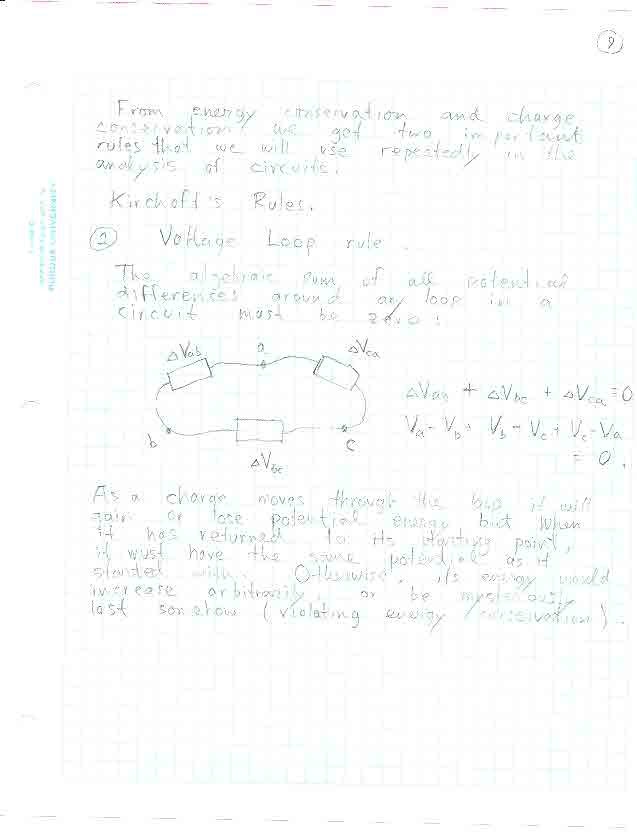 9
From energy conservation and charge
conservation we get two important
rules that we will use repeatedly in the
analysis of circuits.
Kirchoff's Rules.
1 Voltage Loop rule.
The algebraic sum of all potential
differences around any loop in a
circuit must be zero:
ΔVab a ΔVca
ΔVab + ΔVbc + ΔVca = 0
b c
Va - Vb + Vb - Vc + Vc - Va
= 0.
ΔVbc
As a charge moves through the loop it will
gain or lose potential energy but when
it has returned to its starting point,
it must have the same potential as it
started with. Otherwise, its energy would
increase arbitrarily, or be mysteriously
lost somehow (violating energy conservation).